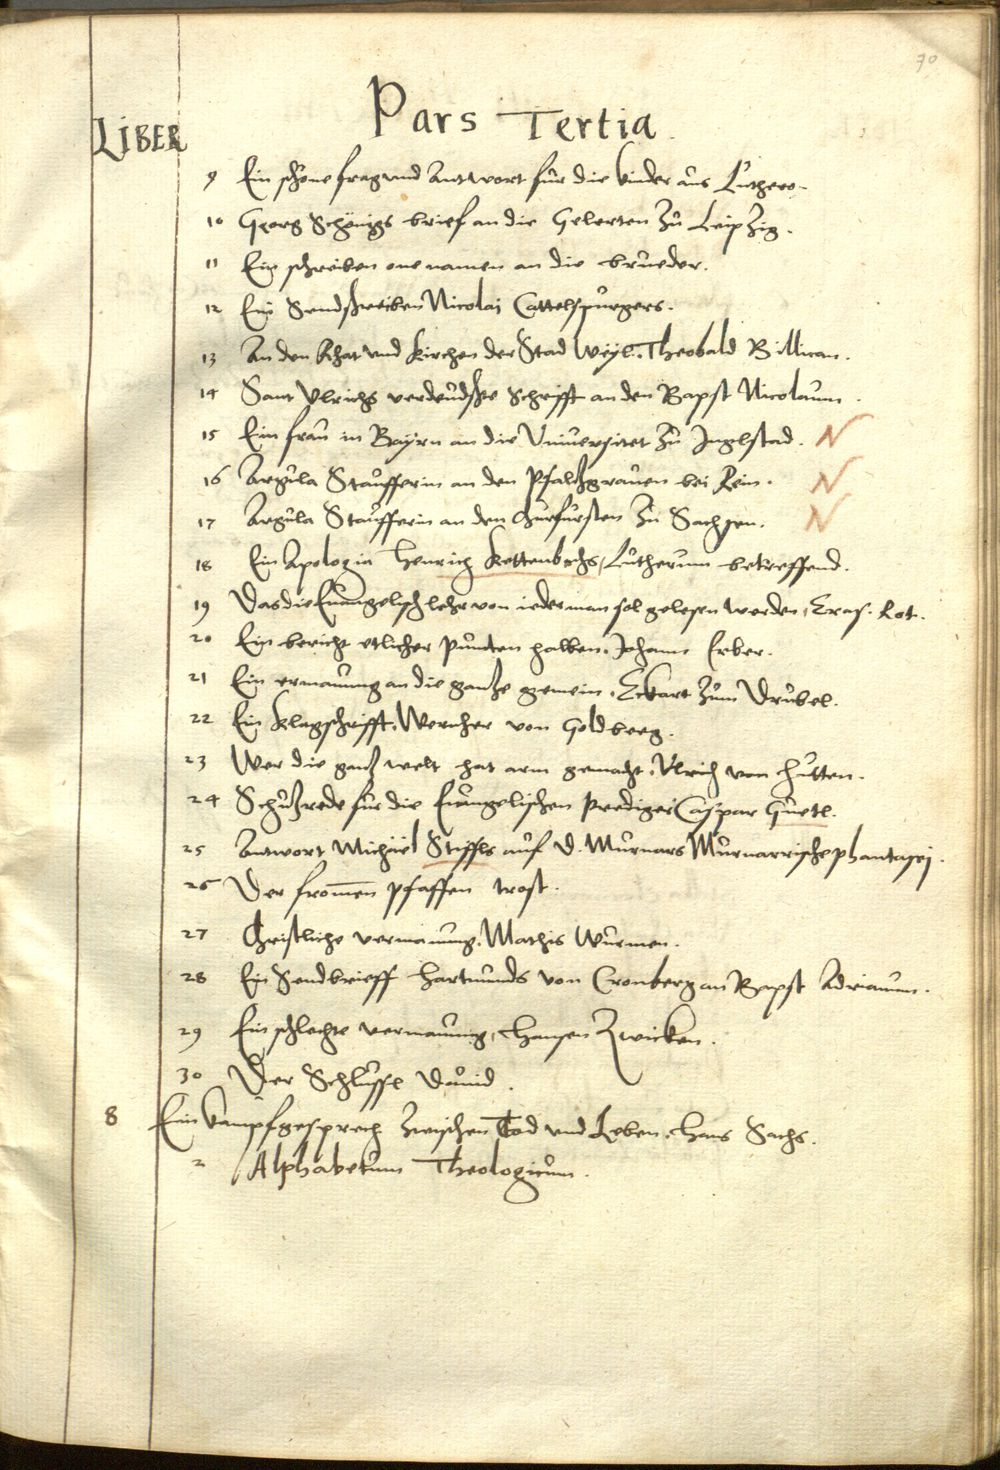 70
Pars Tertia.
LIBER
9 Ein schone frag und Antwort für die kinder aus Luthero.
10 Georg Schönigs brief an die Gelerten zu Leipzig.
11 Ein schreiben one namen an die brueder.
12 Ein Sendschreiben Nicolai Cattelspurgers.
13 An den Rhat und kirchen der Stad Weyl. Theobald Billican.
14 Sant Ulrichs verdeudschte Schrifft an den Bapst Nicolaum.
15 Ein frau in Bayrn an die Universitet zu Inglstad. N
16 Argula Staufferin an den Pfaltzgrauen bei Rein. N
17 Argula Staufferin an den Churfursten zu Sachsen. N
18 Ein Apologia Henrich Kettenbachs, Lutherum betreffend.
19 Das die Euangelisch lehr von iederman sol gelesen werden, Eras. Rot.
20 Ein bericht etlicher Puncten halben. Johann Erber.
21 Ein ermanung an die gantze gemein. Eckart zum Drubel.
22 Ein klagschrifft, Wernher von Goldberg.
23 Wer die gantz welt hat arm gemacht. Ulrich von Hutten.
24 Schutzrede fur die Euangelischen Prediger Caspar Guetl.
25 Antwort Michäel Stiffls auf D. Murnars Murnarrische phantasei.
26 Der fromen pfaffen trost.
27 Christliche vermanung. Mathis Wurmen.
28 Ein Sendbrieff Hartmunds von Cronberg an Bapst Adrianum.
29 Ein schlechte vermanung, Hansen Zwicken.
30 Der Schlussl Dauid.
8 Ein kampfgesprech zwischen Tod und Leben. Hans Sachs.
2 Alphabetum Theologicum.